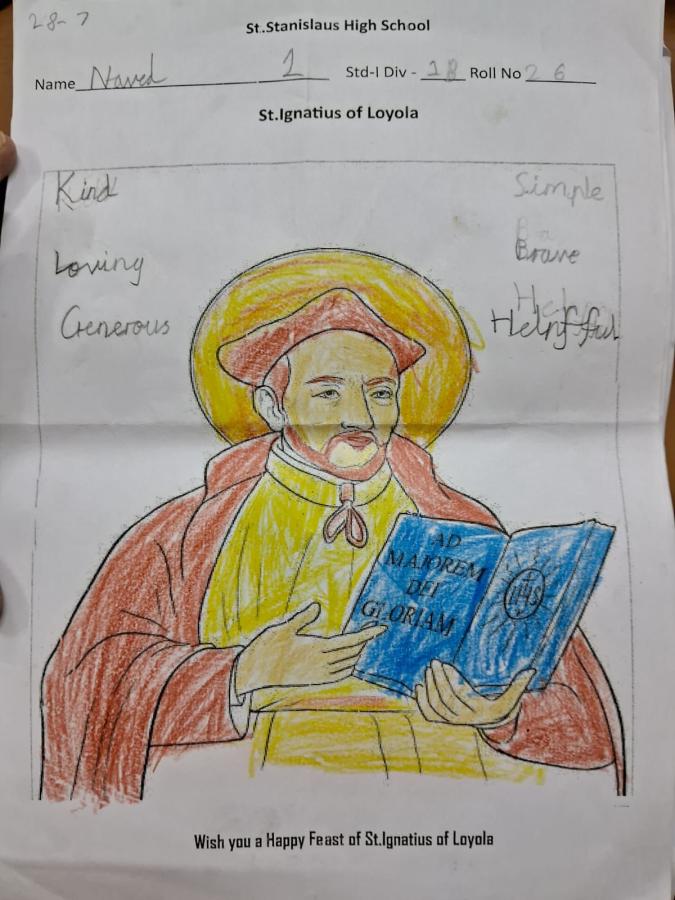 28-7
St.Stanislaus High School
Name Naved 1 Std-I Div - 1B Roll No 26
St.Ignatius of Loyola
Kind Simple
Loving Brave
Generous
AD
MAJOREM
DEI
GLORIAM
IHS
Wish you a Happy Feast of St.Ignatius of Loyola